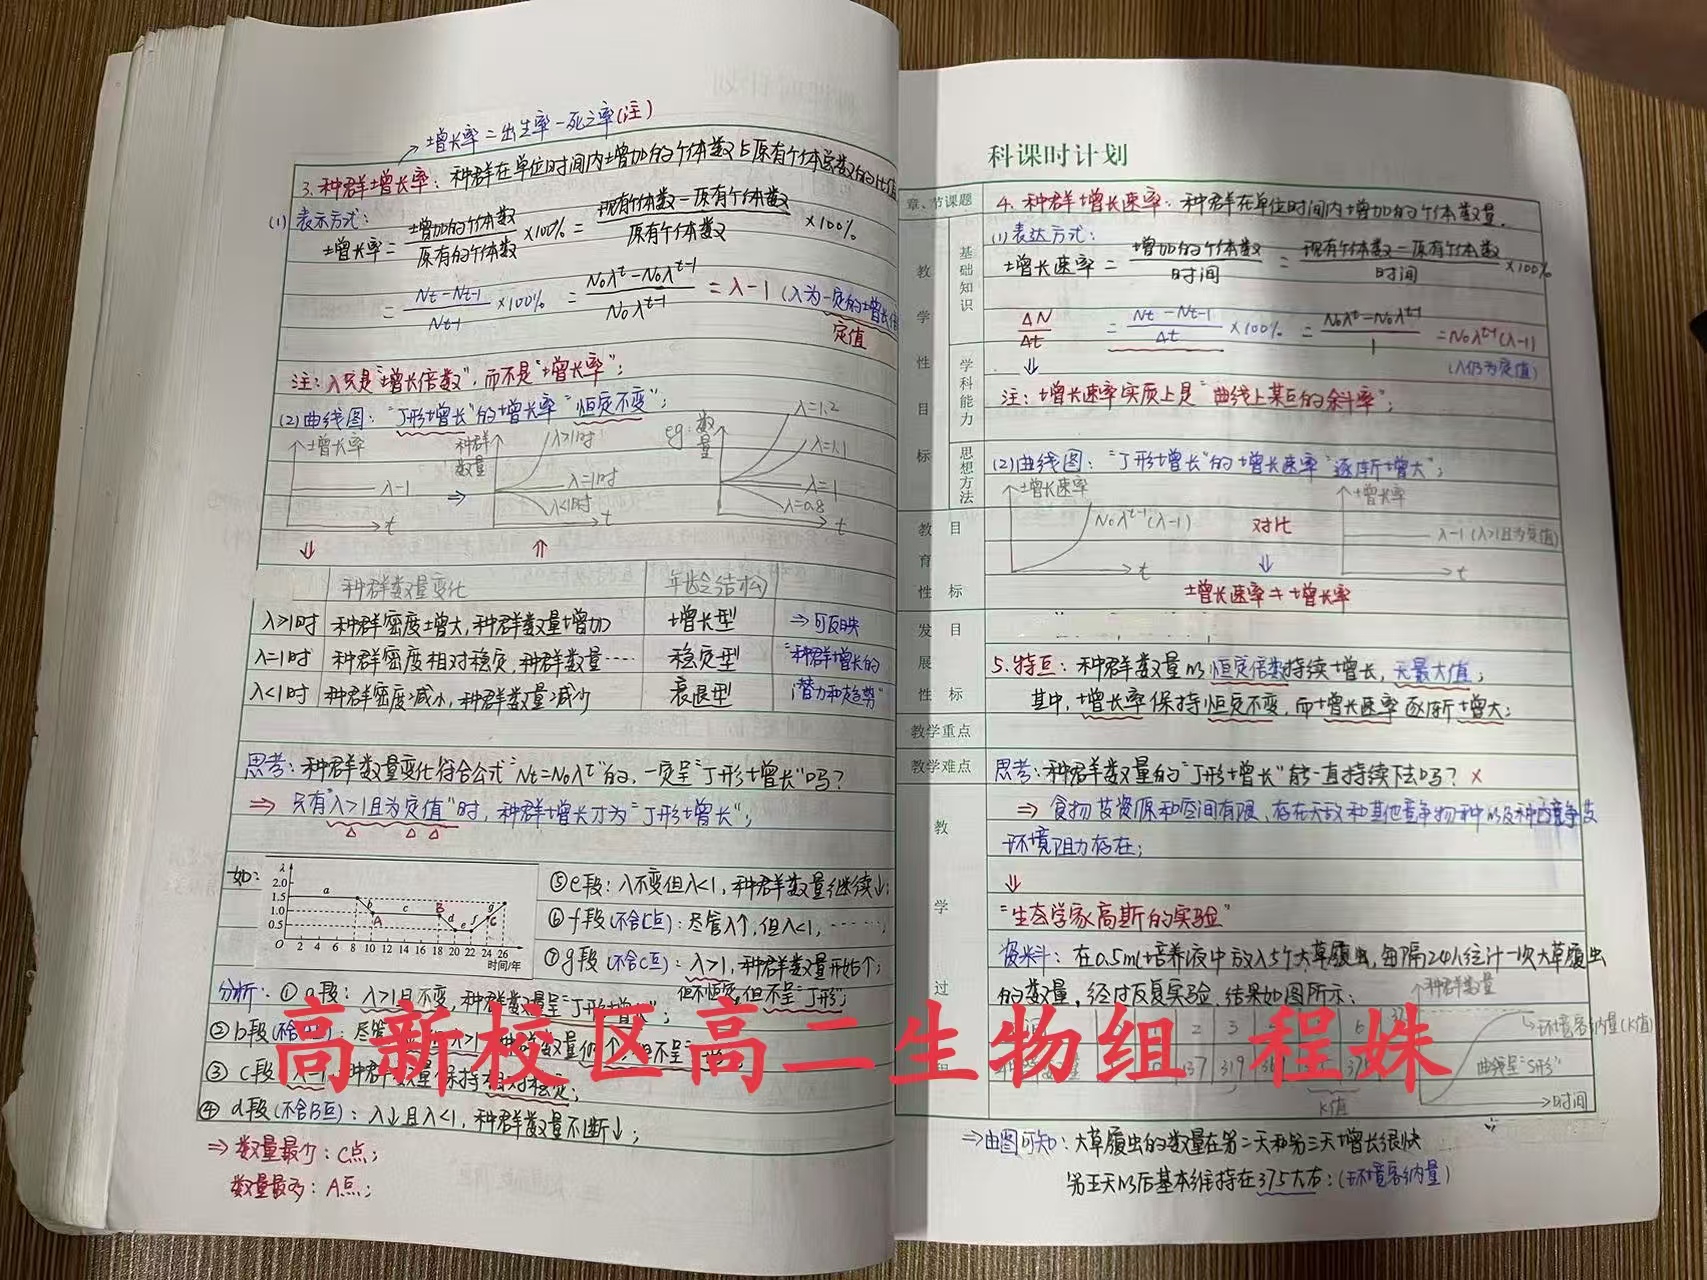 增长率=出生率-死亡率(注)
3.种群增长率:种群在单位时间内增加的个体数占原有个体总数的比值
(1)表示方式:
增长率=增加的个体数/原有的个体数×100%=现有个体数-原有个体数/原有个体数×100%
=Nt-Nt-1/Nt-1×100%=N₀λᵗ-N₀λᵗ⁻¹/N₀λᵗ⁻¹=λ-1(λ为一定的增长倍
定值
注:λ只是"增长倍数",而不是"增长率";
(2)曲线图:"J形增长"的增长率"恒定不变";
增长率
λ-1
t
种群数量
λ>1时
λ=1时
λ<1时
t
eg:数量
λ=1.2
λ=1.1
λ=1
λ=0.8
t
种群数量变化 年龄结构
λ>1时 种群密度增大,种群数量增加 增长型 ⇒可反映
λ=1时 种群密度相对稳定,种群数量…… 稳定型 "种群增长的
λ<1时 种群密度减小,种群数量减少 衰退型 潜力和趋势"
思考:种群数量变化符合公式"Nt=N₀λᵗ"的,一定呈"J形增长"吗?
⇒ 只有"λ>1且为定值"时,种群增长才为"J形增长";
如:
λ
2.0
1.5
1.0
0.5
0
a b c d e f g
A B C
2 4 6 8 10 12 14 16 18 20 22 24 26
时间/年
⑤e段:λ不变但λ<1,种群数量继续↓;
⑥f段(不含C点):尽管λ↑,但λ<1,……;
⑦g段(不含C点):λ>1,种群数量开始↑;
但不恒定,但不呈"J形";
分析:①a段:λ>1且不变,种群数量呈"J形增长";
②b段
③c段 种群数量保持相对稳定;
④d段(不含B点):λ↓且λ<1,种群数量不断↓;
⇒数量最少:C点;
数量最多:A点;
科课时计划
章、节课题
教学性目标
基础知识
学科能力
思想方法
教育性目标
发展性目标
教学重点
教学难点
教学过
4.种群增长速率:种群在单位时间内增加的个体数量.
(1)表达方式:
增长速率=增加的个体数/时间=现有个体数-原有个体数/时间×100%
ΔN/Δt=Nt-Nt-1/Δt×100%=N₀λᵗ-N₀λᵗ⁻¹/1=N₀λᵗ⁻¹(λ-1)
(λ仍为定值)
注:增长速率实质上是"曲线上某点的斜率";
(2)曲线图:"J形增长"的增长速率"逐渐增大";
增长速率
N₀λᵗ⁻¹(λ-1)
t
对比
增长率
λ-1(λ>1且为定值)
t
增长速率≠增长率
5.特点:种群数量以恒定倍数持续增长,无最大值;
其中,增长率保持恒定不变,而增长速率逐渐增大;
思考:种群数量的"J形增长"能一直持续下去吗?×
⇒食物等资源和空间有限、存在天敌和其他竞争物种以及种内竞争等
环境阻力存在;
"生态学家高斯的实验"
资料:在0.5ml培养液中放入5个大草履虫,每隔24h统计一次大草履虫
的数量,经过反复实验,结果如图所示:
2 3 6
137 319
K值
种群数量
环境容纳量(K值)
曲线呈"S形"
时间
⇒由图可知:大草履虫的数量在第二天和第三天增长很快
第五天以后基本维持在375左右:(环境容纳量)
高新校区高二生物组 程姝